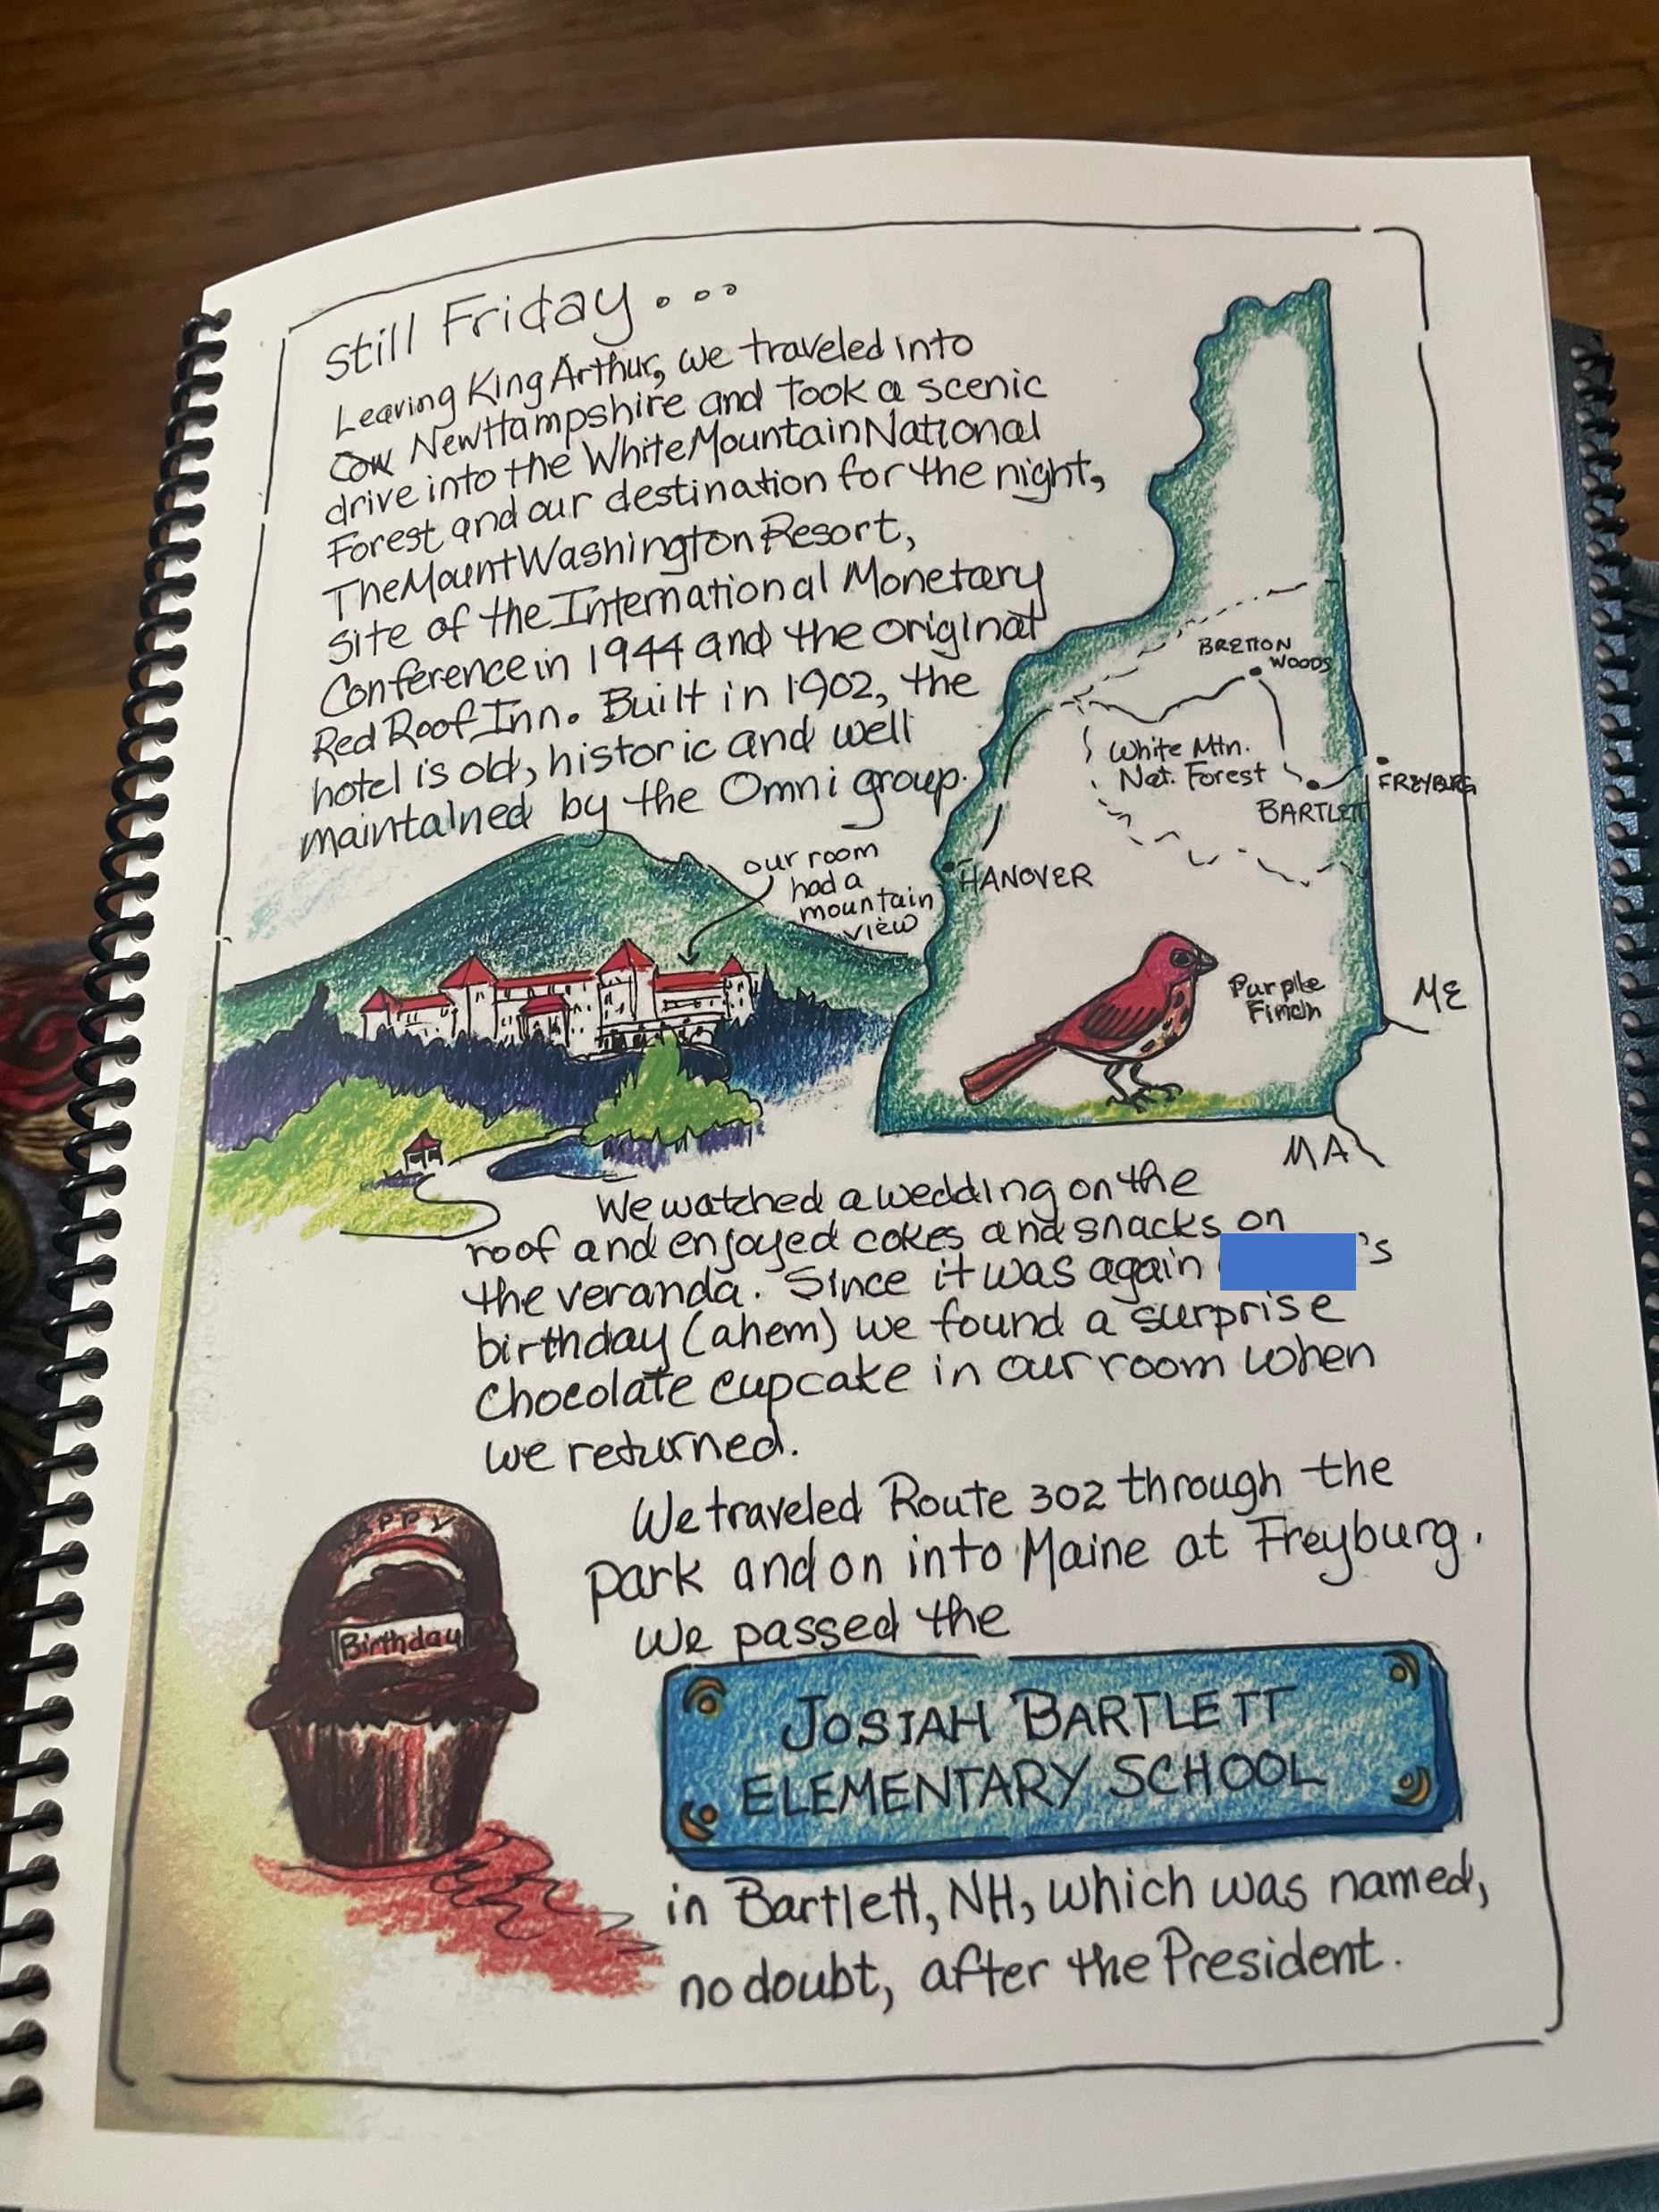 Still Friday...
Leaving King Arthur, we traveled into
Cow New Hampshire and took a scenic
drive into the White Mountain National
Forest and our destination for the night,
The Mount Washington Resort,
site of the International Monetary
Conference in 1944 and the original
Red Roof Inn. Built in 1902, the
hotel is old, historic and well
maintained by the Omni group.
our room
had a
mountain
view
BRETTON
WOODS
White Mtn.
Nat. Forest
FREYBURG
BARTLETT
HANOVER
Purple
Finch
ME
MA
We watched a wedding on the
roof and enjoyed cokes and snacks on
the veranda. Since it was again 's
birthday (ahem) we found a surprise
chocolate cupcake in our room when
we returned.
We traveled Route 302 through the
park and on into Maine at Freyburg.
We passed the
APPY
Birthday
JOSIAH BARTLETT
ELEMENTARY SCHOOL
in Bartlett, NH, which was named,
no doubt, after the President.